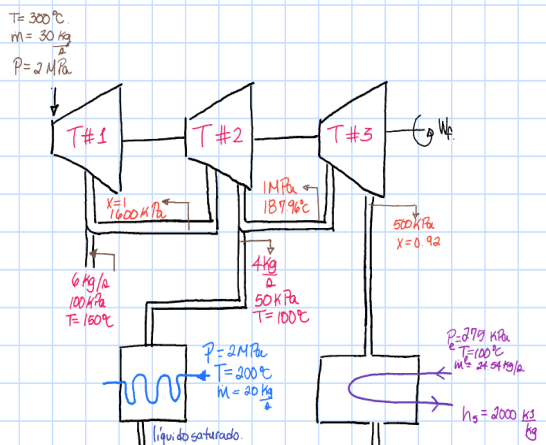 T= 300°C.
ṁ= 30 kg/s
P= 2 MPa
T#1
T#2
T#3
Wf.
x=1
1600 kPa
1MPa
187.96°C
500kPa
x=0.92
6 kg/s
100kPa
T=150°C
4kg/s
50kPa
T=100°C
P=2MPa
T=200°C
ṁ=20 kg/s
Pe=275 kPa
Te=100°C
ṁ=24.54 kg/s
hs=2000 kJ/kg
líquido saturado.